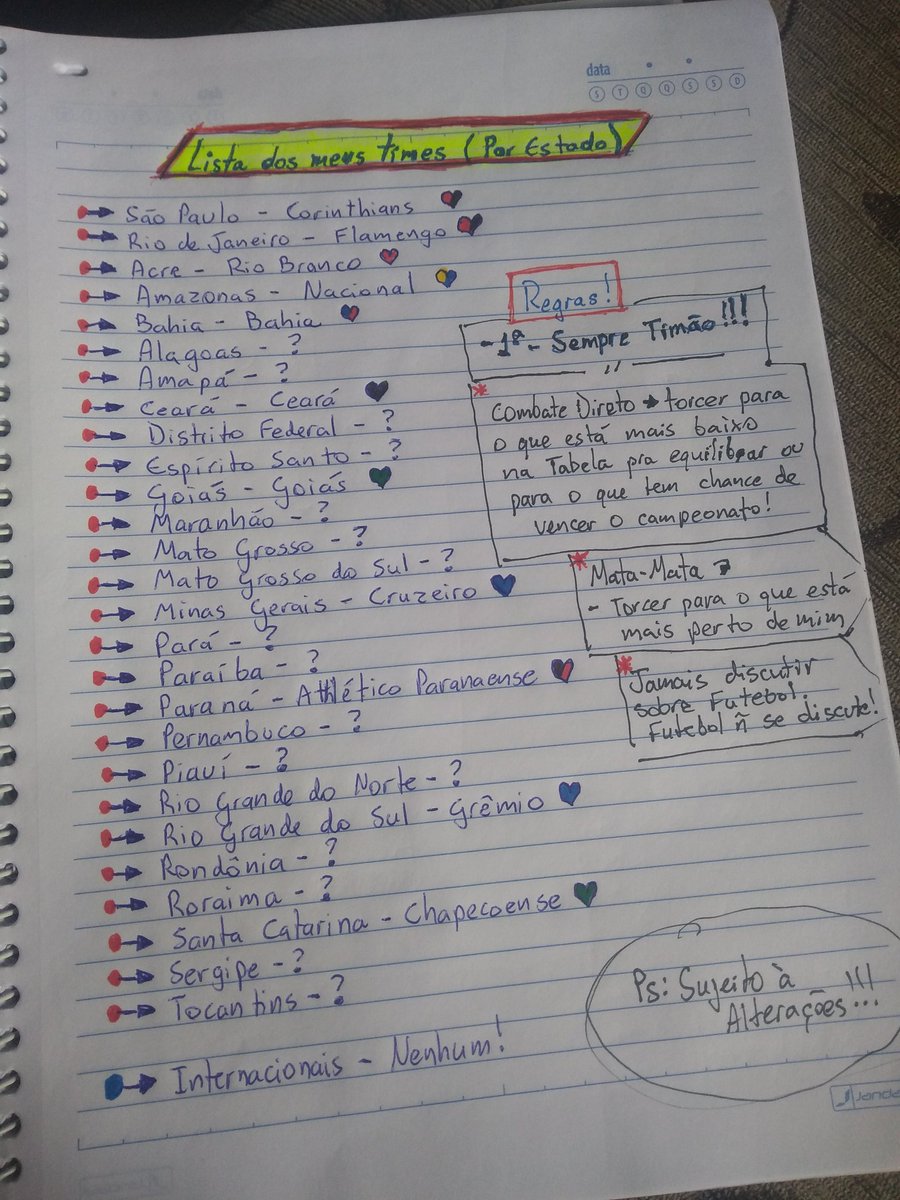 data
S T Q Q S S D
Lista dos meus times (Por Estado)
São Paulo - Corinthians
Rio de Janeiro - Flamengo
Acre - Rio Branco
Amazonas - Nacional
Bahia - Bahia
Alagoas - ?
Amapá - ?
Ceará - Ceará
Distrito Federal - ?
Espírito Santo - ?
Goiás - Goiás
Maranhão - ?
Mato Grosso - ?
Mato Grosso do Sul - ?
Minas Gerais - Cruzeiro
Pará - ?
Paraíba - ?
Paraná - Athlético Paranaense
Pernambuco - ?
Piauí - ?
Rio Grande do Norte - ?
Rio Grande do Sul - Grêmio
Rondônia - ?
Roraima - ?
Santa Catarina - Chapecoense
Sergipe - ?
Tocantins - ?
Internacionais - Nenhum!
Regras!
- 1ª - Sempre Timão!!!
* Combate Direto → torcer para
o que está mais baixo
na Tabela pra equilibrar ou
para o que tem chance de
vencer o campeonato!
* Mata-Mata →
- Torcer para o que está
mais perto de mim
* Jamais discutir
sobre Futebol.
Futebol ñ se discute!
Ps: Sujeito à
Alterações!!!